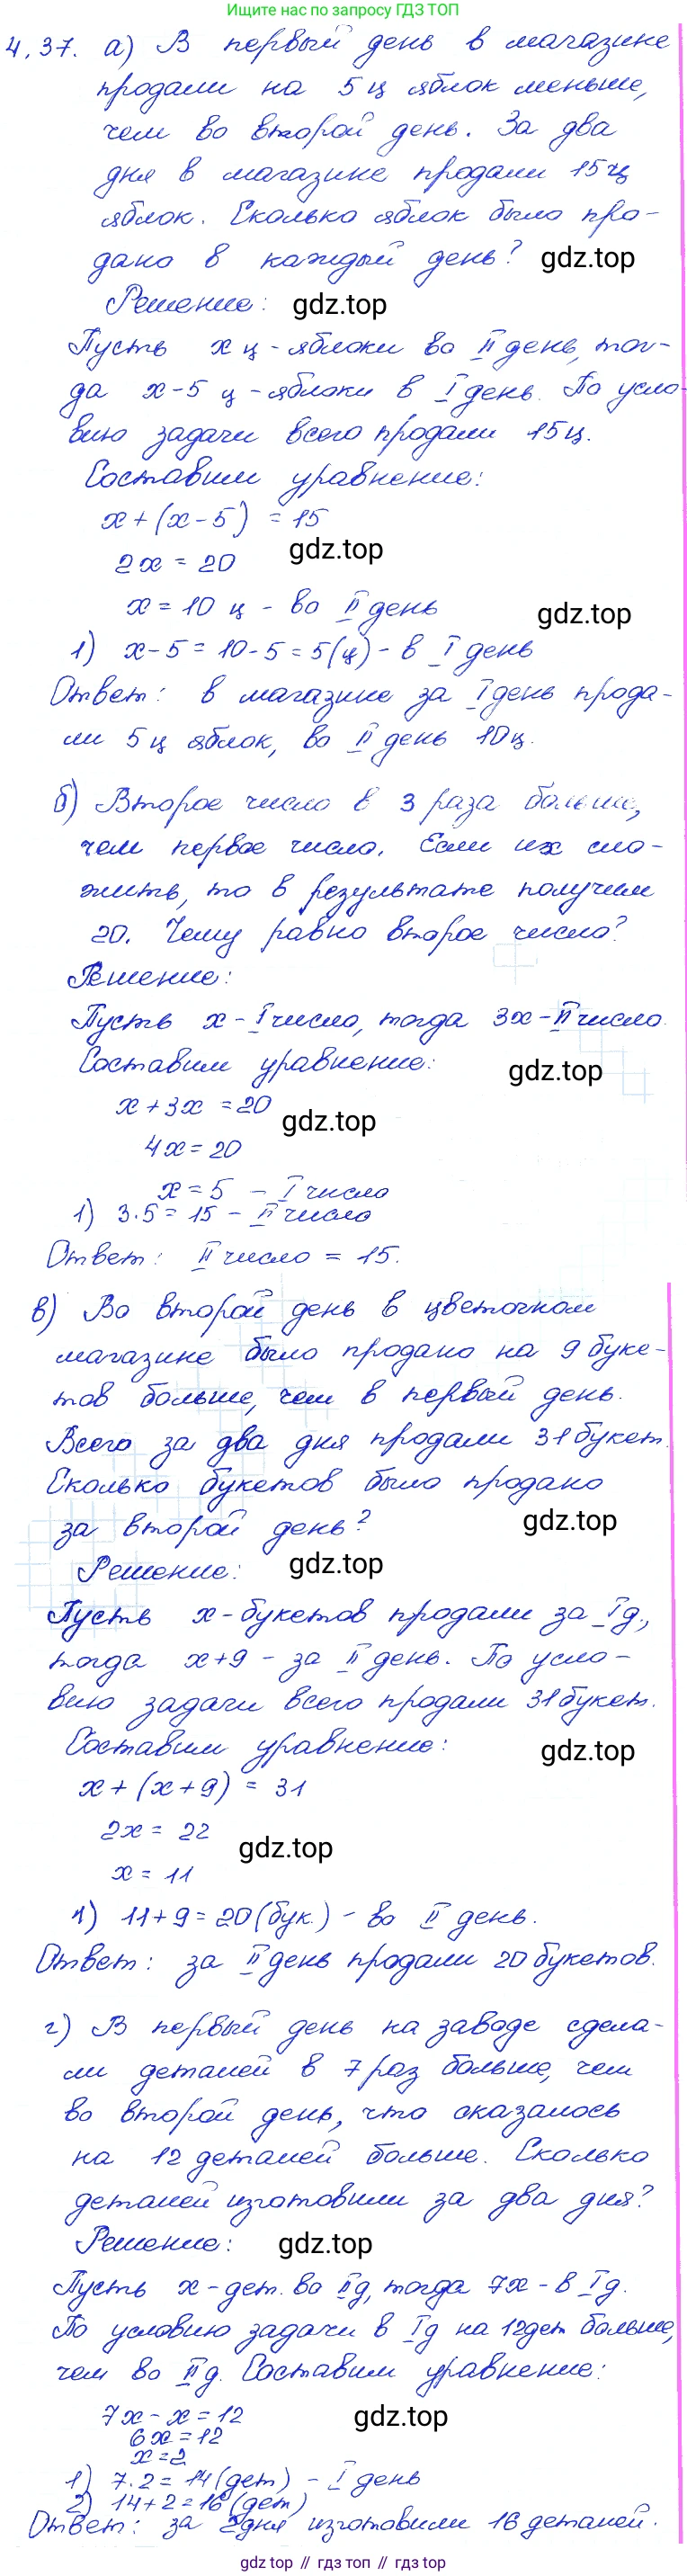 Ищите нас по запросу ГДЗ ТОП
4.37. а) В первый день в магазине
продали на 5 ц яблок меньше,
чем во второй день. За два
дня в магазине продали 15 ц
яблок. Сколько яблок было про-
дано в каждый день? gdz.top
Решение: gdz.top
Пусть х ц - яблоки во II день, тог-
да х-5 ц - яблоки в I день. По усло-
вию задачи всего продали 15 ц.
Составим уравнение:
х+(х-5) = 15
2х = 20 gdz.top
х = 10 ц - во II день gdz.top
1) х-5 = 10-5 = 5(ц) - в I день
Ответ: в магазине за I день прода-
ли 5 ц яблок, во II день 10 ц.
б) Второе число в 3 раза больше,
чем первое число. Если их сло-
жить, то в результате получим
20. Чему равно второе число?
Решение:
Пусть х - I число, тогда 3х - II число.
Составим уравнение: gdz.top
х+3х = 20 gdz.top
4х = 20
х = 5 - I число
1) 3·5 = 15 - II число
Ответ: II число = 15.
в) Во второй день в цветочном
магазине было продано на 9 буке-
тов больше, чем в первый день.
Всего за два дня продали 31 букет.
Сколько букетов было продано
за второй день? gdz.top
Решение: gdz.top
Пусть х - букетов продали за I д.,
тогда х+9 - за II день. По усло-
вию задачи всего продали 31 букет.
Составим уравнение: gdz.top
х+(х+9) = 31
2х = 22 gdz.top
х = 11
1) 11+9 = 20 (бук.) - во II день.
Ответ: за II день продали 20 букетов.
г) В первый день на заводе сдела-
ли деталей в 7 раз больше, чем
во второй день, что оказалось
на 12 деталей больше. Сколько
деталей изготовили за два дня?
Решение: gdz.top
Пусть х - дет. во II д, тогда 7х - в I д.
По условию задачи в I д на 12 дет больше,
чем во II д. Составим уравнение:
7х - х = 12 gdz.top
6х = 12
х = 2
1) 7·2 = 14 (дет) - I день
2) 14+2 = 16 (дет)
Ответ: за 2 дня изготовили 16 деталей.
gdz top // гдз топ // gdz top